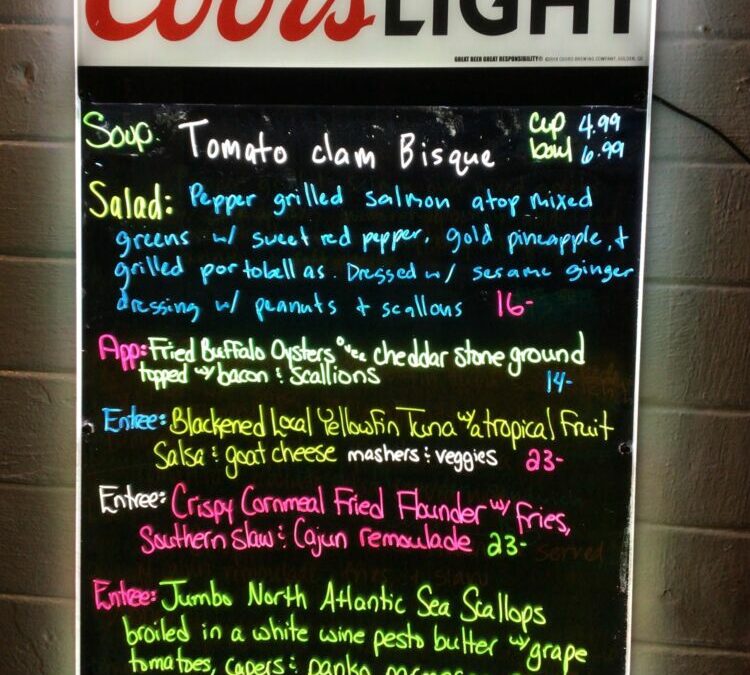 Coors LIGHT
GREAT BEER GREAT RESPONSIBILITY®
Soup. Tomato clam Bisque cup 4.99
bowl 6.99
Salad: Pepper grilled salmon atop mixed
greens w/ sweet red pepper, gold pineapple, +
grilled portobellas. Dressed w/ sesame ginger
dressing w/ peanuts + scallons 16-
App: Fried Buffalo Oysters over cheddar stone ground
topped w/ bacon & Scallions 14-
Entree: Blackened Local Yellowfin Tuna w/ a tropical Fruit
Salsa & goat cheese mashers & veggies 23-
Entree: Crispy Cornmeal Fried Flounder w/ fries,
Southern Slaw & Cajun remoulade 23-
Entree: Jumbo North Atlantic Sea Scallops
broiled in a white wine pesto butter w/ grape
tomatoes, capers & panko